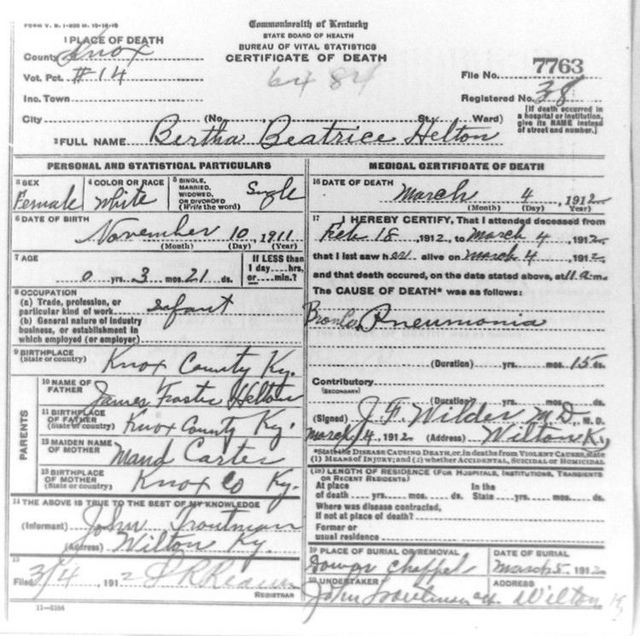 FORM V. S. 1-200 M. 10-18-10
Commonwealth of Kentucky
STATE BOARD OF HEALTH
BUREAU OF VITAL STATISTICS
CERTIFICATE OF DEATH
1 PLACE OF DEATH
County Knox
Vot. Pct. #14
Inc. Town
City (No. St.; Ward)
File No. 7763
Registered No. 38
[If death occurred in a hospital or institution, give its NAME instead of street and number.]
2 FULL NAME Bertha Beatrice Helton
PERSONAL AND STATISTICAL PARTICULARS
3 SEX
Female
4 COLOR OR RACE
White
5 SINGLE, MARRIED, WIDOWED, OR DIVORCED (Write the word)
Single
6 DATE OF BIRTH
November 10, 1911
(Month) (Day) (Year)
7 AGE
0 yrs. 3 mos. 21 ds.
If LESS than
1 day....hrs.
or....min.?
8 OCCUPATION
(a) Trade, profession, or
particular kind of work infant
(b) General nature of industry
business, or establishment in
which employed (or employer)
9 BIRTHPLACE
(State or country) Knox County Ky.
PARENTS
10 NAME OF
FATHER James Foster Helton
11 BIRTHPLACE
OF FATHER
(State or country) Knox County Ky.
12 MAIDEN NAME
OF MOTHER Maud Carter
13 BIRTHPLACE
OF MOTHER
(State or country) Knox Co Ky.
14 THE ABOVE IS TRUE TO THE BEST OF MY KNOWLEDGE
(Informant) John Troutman
(Address) Wilton Ky.
15
Filed 3/4, 1912
REGISTRAR
11-3184
MEDICAL CERTIFICATE OF DEATH
16 DATE OF DEATH
March 4, 1912
(Month) (Day) (Year)
17 I HEREBY CERTIFY, That I attended deceased from
Feb 18, 1912, to March 4, 1912
that I last saw her alive on March 4, 1912
and that death occured, on the date stated above, at 11 a.m.
The CAUSE OF DEATH* was as follows:
Pneumonia
(Duration) yrs. mos. 15 ds.
Contributory
(SECONDARY)
(Duration) yrs. mos. ds.
(Signed) J. F. Wilder M.D., M. D.
March 4, 1912 (Address) Wilton Ky
*State the DISEASE CAUSING DEATH, or, in deaths from VIOLENT CAUSES, state
(1) MEANS OF INJURY; and (2) whether ACCIDENTAL, SUICIDAL or HOMICIDAL.
(18) LENGTH OF RESIDENCE (FOR HOSPITALS, INSTITUTIONS, TRANSIENTS
OR RECENT RESIDENTS)
At place In the
of death yrs. mos. ds. State yrs. mos. ds.
Where was disease contracted,
If not at place of death?
Former or
usual residence
19 PLACE OF BURIAL OR REMOVAL
Chappel
DATE OF BURIAL
March 5, 1912
20 UNDERTAKER
John Troutman
ADDRESS
Wilton Ky